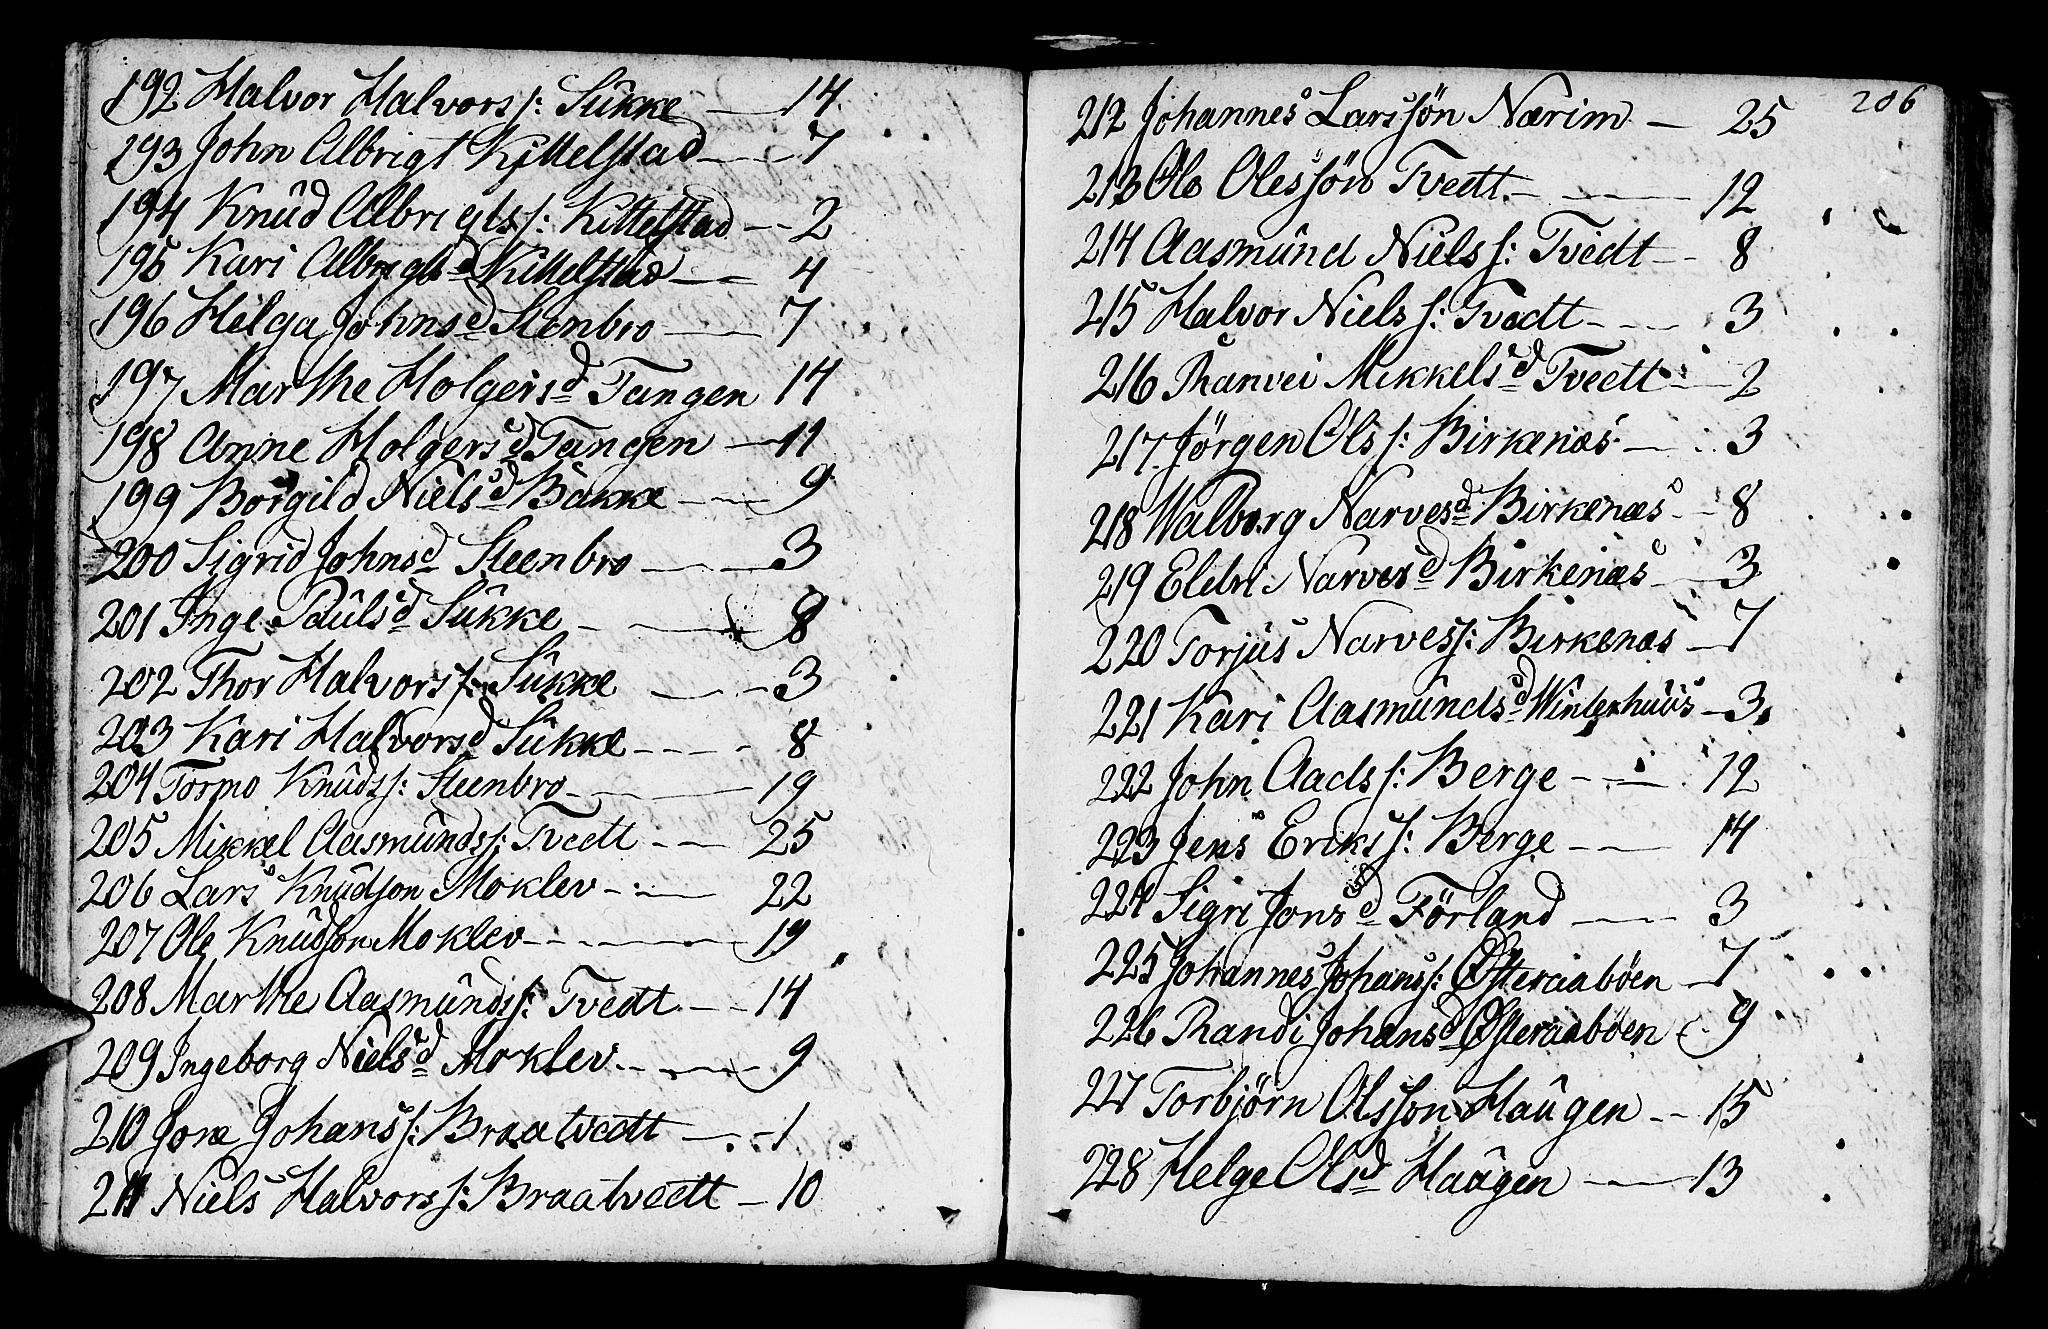 192 Halvor Halvors s: Sukke — 14
193 John Albrigt Kittelstad — 7
194 Knud Albrigts s: Kittelstad — 2
195 Kari Albrigtsd Kittelstad — 4
196 Helga Johnsd Steenbro — 7
197 Marthe Holgersd Tangen 14
198 Anne Holgersd Tangen — 11
199 Borgild Nielsd Bakke — 9
200 Sigrid Johnsd Steenbro — 3
201 Inge Paulsd Sukke — 8
202 Thor Halvors s: Sukke — 3
203 Kari Halvorsd Sukke — 8
204 Tormo Knuds s: Steenbro — 19
205 Mikkel Aasmunds s: Tvedt — 25
206 Lars Knudson Moklev — 22
207 Ole Knudson Moklev — 19
208 Marthe Aasmunds s: Tvedt — 14
209 Ingeborg Nielsd Moklev — 9
210 Jone Johans s: Braatvedt — 1
211 Niels Halvors s: Braatvedt — 10
206
212 Johannes Larssön Nærim — 25
213 Ole Olessön Tvedt — 12
214 Aasmund Niels s: Tvedt — 8
215 Halvor Niels s: Tvedt — 3
216 Ranvei Mikkelsd Tvedt — 2
217 Jörgen Ols s: Birkenæs — 3
218 Walborg Narvesd Birkenæs — 8
219 Eldri Narvesd Birkenæs — 3
220 Torjus Narves s: Birkenæs — 7
221 Kari Aasmundsd Winterhuus — 3
222 John Aads s: Berge — 12
223 Jens Eriks s: Berge — 14
224 Sigri Jonsd Förland — 3
225 Johannes Johans s: Østeraabøen — 7
226 Randi Johansd Østeraabøen 9
227 Torbjörn Olsson Haugen — 15
228 Helge Olsd Haugen — 13